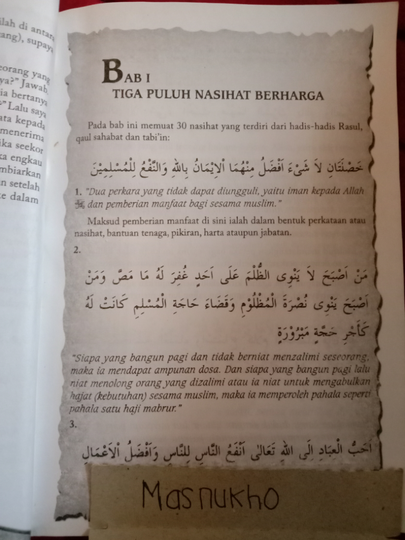 ilah di antara
ang), supaya
eorang yang
ya?" Jawab
ia bertanya
?" Lalu saya
ata kepada
menerima
ika seekor
a engkau
mbiarkan
n setelah
e dalam
BAB I
TIGA PULUH NASIHAT BERHARGA
Pada bab ini memuat 30 nasihat yang terdiri dari hadis-hadis Rasul,
qaul sahabat dan tabi'in:
خَصْلَتَانِ لاَ شَيْءَ اَفْضَلُ مِنْهُمَا اْلاِيْمَانُ بِاللهِ وَالنَّفْعُ لِلْمُسْلِمِيْنَ
1. "Dua perkara yang tidak dapat diungguli, yaitu iman kepada Allah
ﷻ dan pemberian manfaat bagi sesama muslim."
Maksud pemberian manfaat di sini ialah dalam bentuk perkataan atau
nasihat, bantuan tenaga, pikiran, harta ataupun jabatan.
2.
مَنْ اَصْبَحَ لاَ يَنْوِى الظُّلْمَ عَلَى اَحَدٍ غُفِرَ لَهُ مَا مَضَى وَمَنْ
اَصْبَحَ يَنْوِى نُصْرَةَ الْمَظْلُوْمِ وَقَضَاءَ حَاجَةِ الْمُسْلِمِ كَانَتْ لَهُ
كَاَجْرِ حَجَّةٍ مَبْرُوْرَةٍ
"Siapa yang bangun pagi dan tidak berniat menzalimi sesrorang,
maka ia mendapat ampunan dosa. Dan siapa yang bangun pagi lalu
niat menolong orang yang dizalimi atau ia niat untuk mengabulkan
hajat (kebutuhan) sesama muslim, maka ia memperoleh pahala seperti
pahala satu haji mabrur."
3.
اَحَبُّ الْعِبَادِ اِلَى اللهِ تَعَالَى اَنْفَعُ النَّاسِ لِلنَّاسِ وَاَفْضَلُ اْلاَعْمَالِ
Masnukho